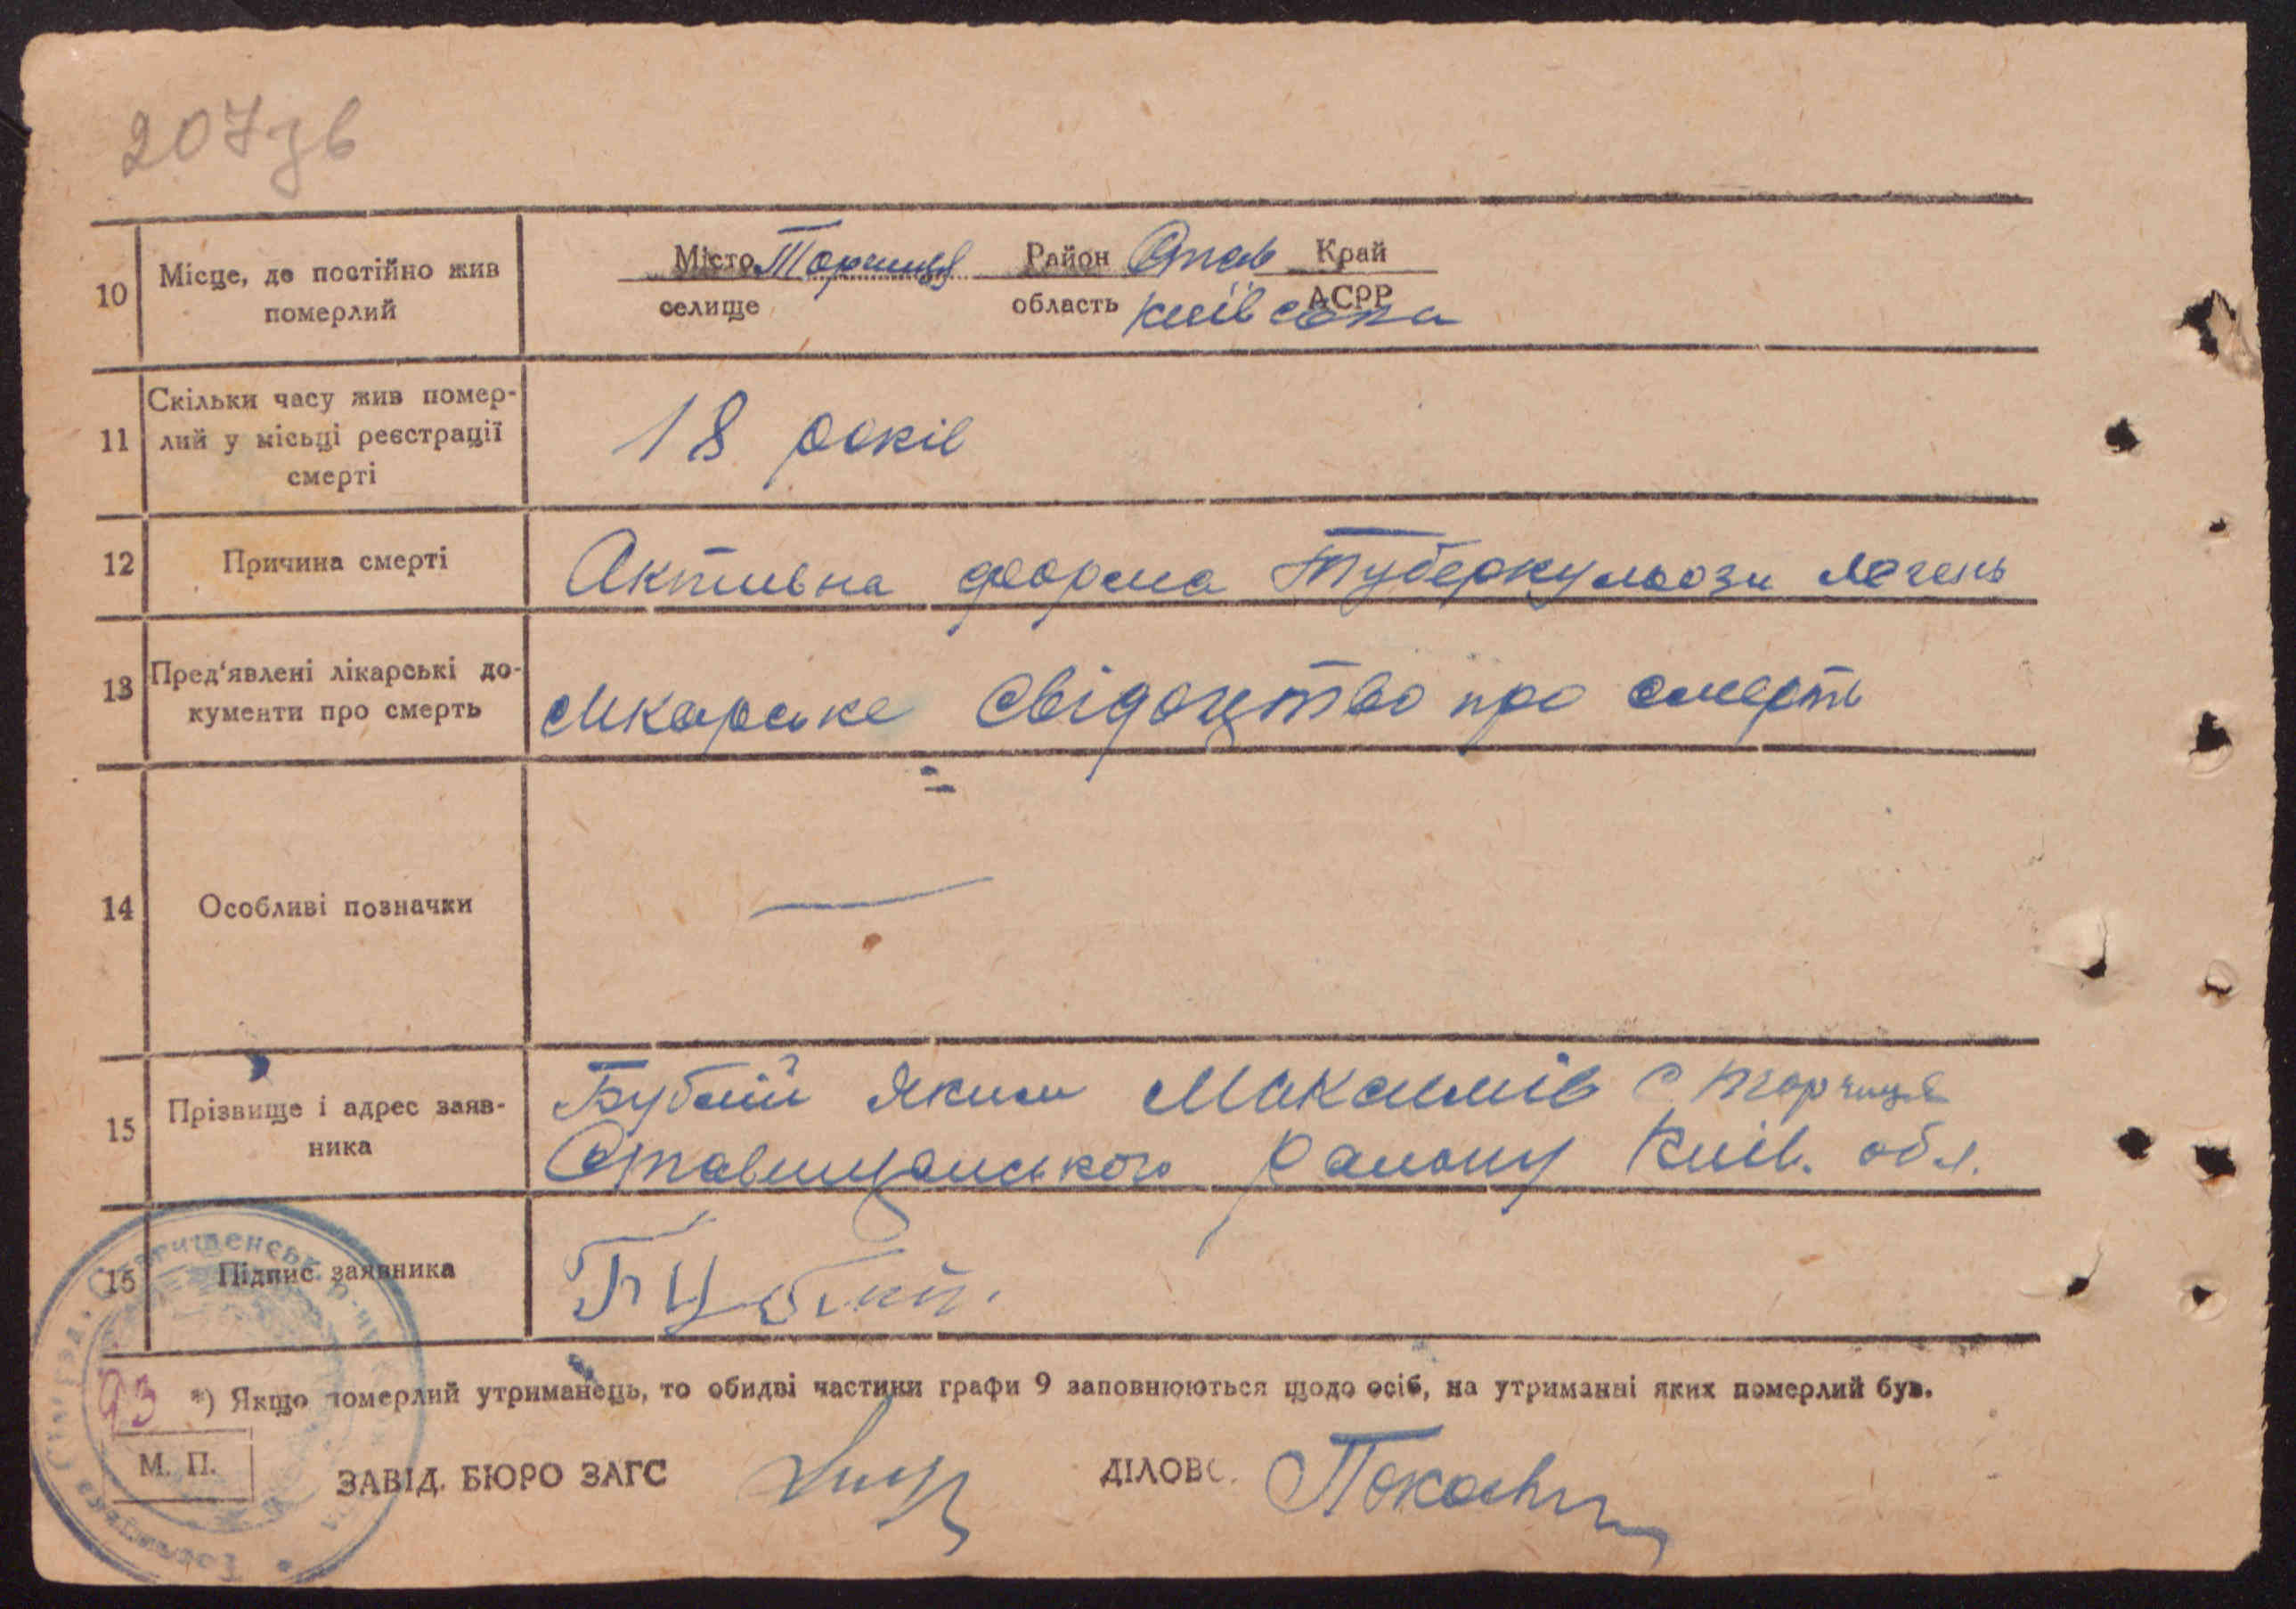 207зв
10 Місце, де постійно жив померлий
Місто Торчиця Район Став Край
селище область Київська АСРР
11 Скільки часу жив помер-
лий у місьці реєстрації
смерті
18 років
12 Причина смерті Активна форма Туберкульози легень
13 Пред'явлені лікарські до-
кументи про смерть
лікарське свідоцтво про смерть
14 Особливі позначки —
15 Прізвище і адрес заяв-
ника
Бублій Яким Максимів с Торчиця
Ставищанського району Київ. обл.
16 Підпис заявника
93 *) Якщо померлий утриманець, то обидві частини графи 9 заповнюються щодо осіб, на утриманні яких померлий був.
М. П.
ЗАВІД. БЮРО ЗАГС ДІЛОВС.